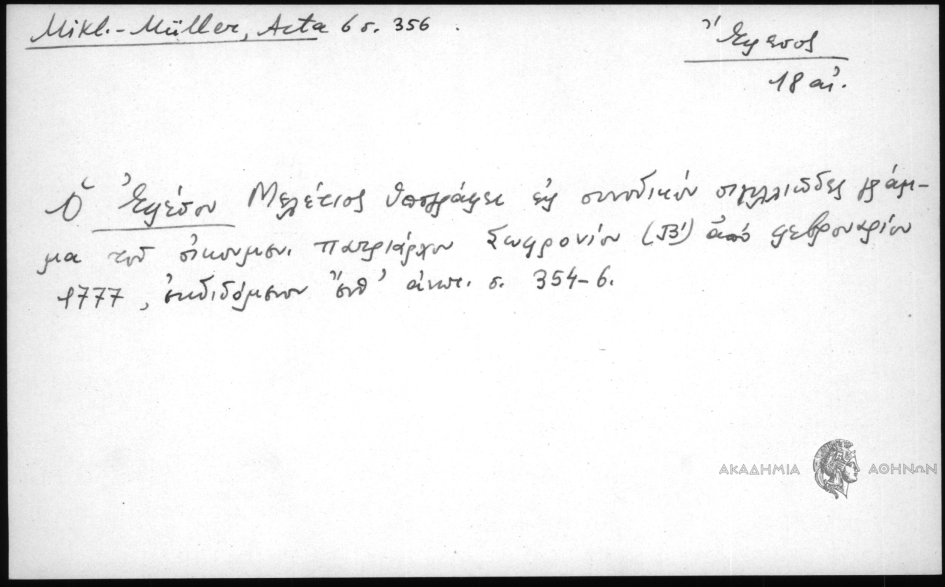 Mikl.-Müller, Acta 6 σ. 356.
Ἔφεσος
18 αἰ.
Ὁ Ἐφέσου Μελέτιος ὑπογράφει εἰς συνοδικόν σιγιλλιῶδες γράμ-
μα τοῦ οἰκουμεν. πατριάρχου Σωφρονίου (Β') ἀπό φεβρουαρίου
1777, ἐκδιδόμενον ἔνθ' ἀνωτ. σ. 354-6.
ΑΚΑΔΗΜΙΑ ΑΘΗΝΩΝ